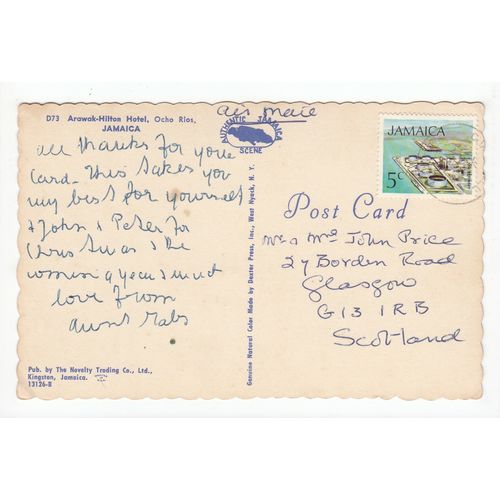 D73 Arawak-Hilton Hotel, Ocho Rios,
JAMAICA
all thanks for your
card. This takes you
my best for yourself
& John & Peter for
Christmas & the
coming year and
love from
aunt
Pub. by The Novelty Trading Co., Ltd.,
Kingston, Jamaica.
13126-B
Genuine Natural Color Made by Dexter Press, Inc., West Nyack, N. Y.
air mail
AUTHENTIC JAMAICA
SCENE
JAMAICA
5c
Post Card
Mr & Mrs John Price
27 Borden Road
Glasgow
G13 1RB
Scotland